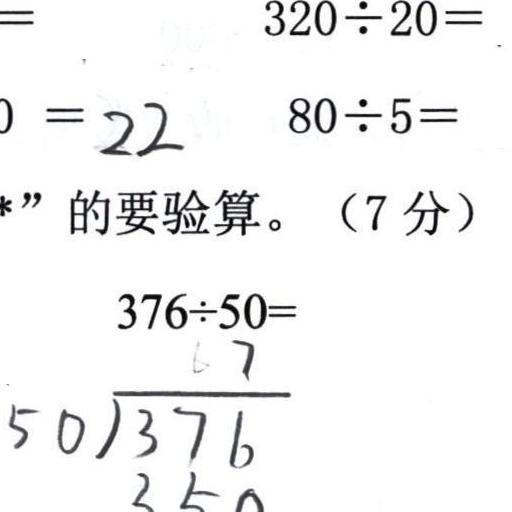 = 320÷20=
0 =22 80÷5=
*”的要验算。（7分）
376÷50=
7
50)376
350